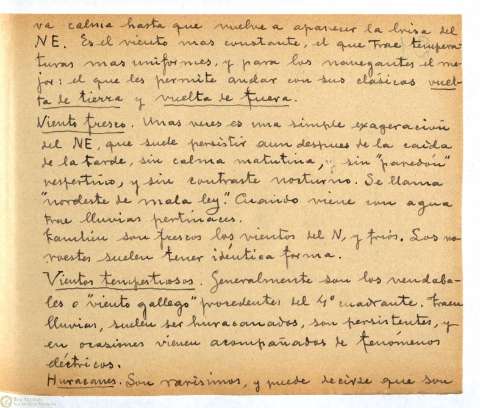 va calma hasta que vuelve a aparecer la brisa del
NE. Es el viento mas constante, el que trae tempera
turas mas uniformes, y para los navegantes el me
jor; el que les permite andar con sus clásicas vuel
ta de tierra y vuelta de fuera.
Viento fresco. Unas veces es una simple exageración
del NE, que suele persistir aun despues de la caida
de la tarde, sin calma matutina, y sin "paredón"
vespertino, y sin contraste nocturno. Se llama
"nordeste de mala ley". Cuando viene con agua
trae lluvias pertinaces.
También son frescos los vientos del N, y fríos. Los no
roestes suelen tener idéntica forma.
Vientos tempestuosos. Generalmente son los vendaba-
les o "viento gallego" procedentes del 4º cuadrante. Traen
lluvias, suelen ser huracanados, son persistentes, y
en ocasiones vienen acompañados de fenómenos
eléctricos.
Huracanes. Son rarísimos, y puede decirse que son